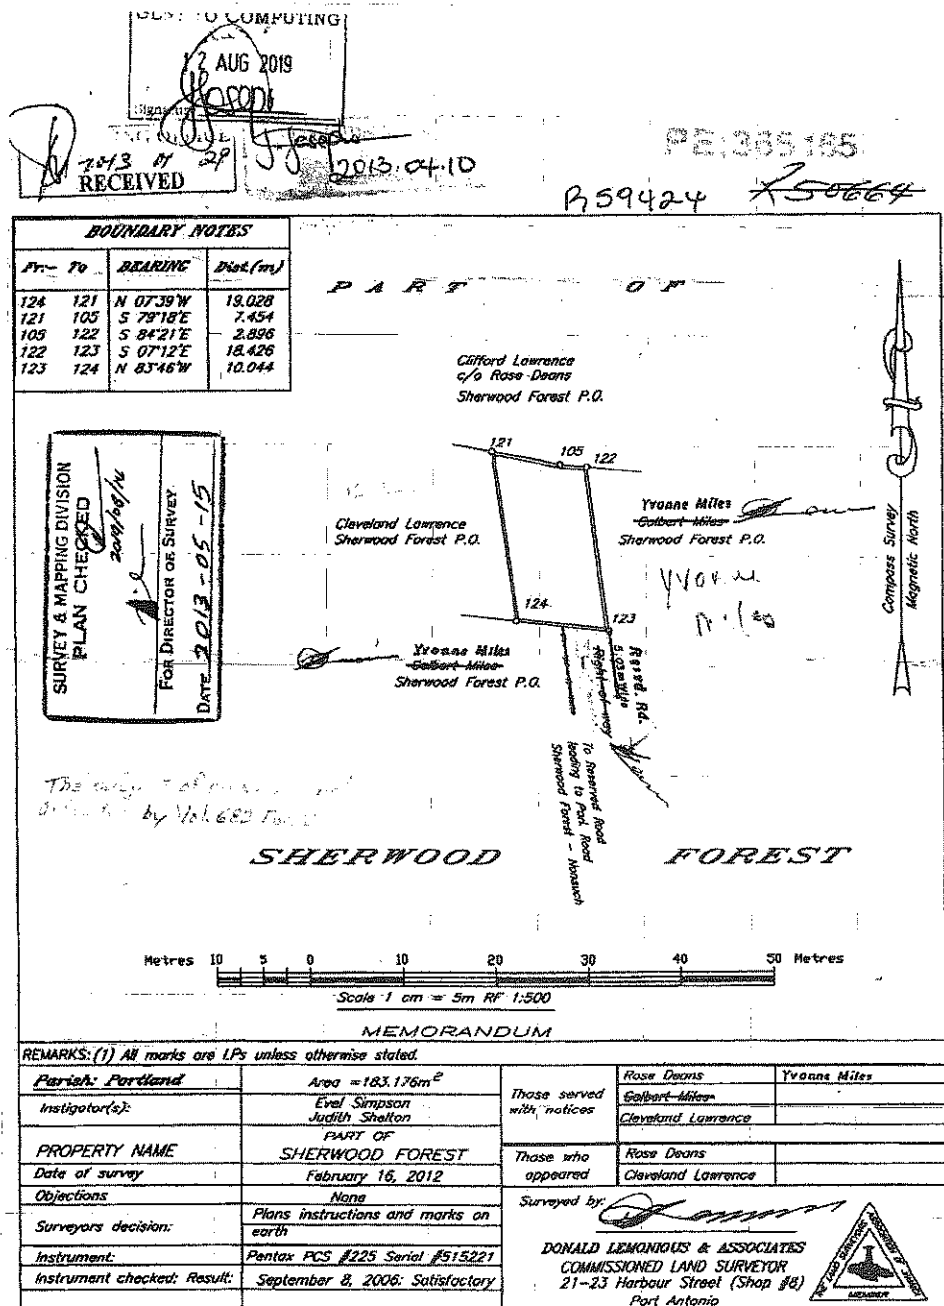 TO COMPUTING
12 AUG 2019
2013 29
RECEIVED
J. Joseph
2013.04.10
PE:365185
R59424 R50664
BOUNDARY NOTES
Fr:- To BEARING Dist.(m)
124 121 N 07°39'W 19.028
121 105 S 79°18'E 7.454
105 122 S 84°21'E 2.896
122 123 S 07°12'E 18.426
123 124 N 83°46'W 10.044
PART OF
Clifford Lawrence
c/o Rose Deans
Sherwood Forest P.O.
121
105
122
Cleveland Lawrence
Sherwood Forest P.O.
Yvonne Miles
Colbert Miles
Sherwood Forest P.O.
Yvonne
Miles
124
123
Yvonne Miles
Colbert Miles
Sherwood Forest P.O.
Resvd. Rd.
5.03m Wide
Right of way
To Reserved Road
leading to Park Road
Sherwood Forest - Nonsuch
Compass Survey
Magnetic North
SURVEY & MAPPING DIVISION
PLAN CHECKED
FOR DIRECTOR OF SURVEY
DATE 2013-05-15
The of
by Vol. 682
SHERWOOD FOREST
Metres 10 5 0 10 20 30 40 50 Metres
Scale 1 cm = 5m RF 1:500
MEMORANDUM
REMARKS: (1) All marks are I.Ps unless otherwise stated.
Parish: Portland Area =183.176m²
Instigator(s): Evel Simpson
Judith Shelton
PROPERTY NAME PART OF
SHERWOOD FOREST
Date of survey February 16, 2012
Objections None
Surveyors decision: Plans instructions and marks on
earth
Instrument: Pentax PCS #225 Serial #515221
Instrument checked: Result: September 8, 2006: Satisfactory
Those served
with notices
Rose Deans Yvonne Miles
Colbert Miles
Cleveland Lawrence
Those who
appeared
Rose Deans
Cleveland Lawrence
Surveyed by:
DONALD LEMONIOUS & ASSOCIATES
COMMISSIONED LAND SURVEYOR
21-23 Harbour Street (Shop #8)
Port Antonio
THE LAND SURVEYORS ASSOCIATION OF JAMAICA
MEMBER